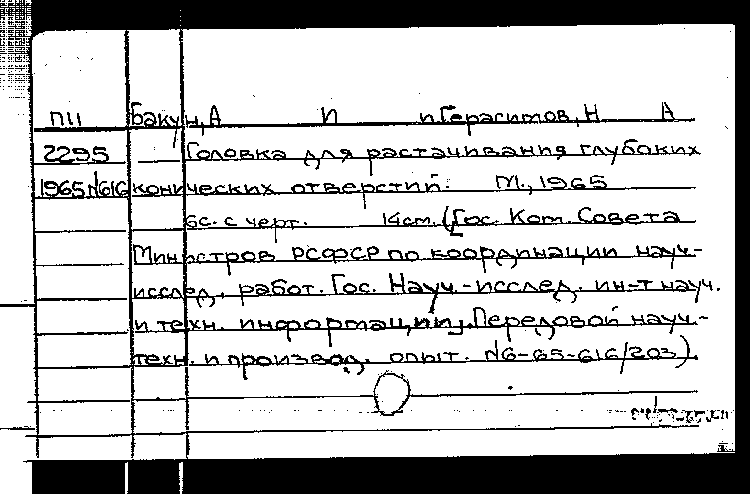 П11 Бакун, А И и Герасимов, Н А
2295 Головка для растачивания глубоких
1965 №616 конических отверстий. М., 1965
6с. с черт. 14см. (Гос. Ком. Совета
Министров РСФСР по координации науч-
исслед. работ. Гос. Науч.-исслед. ин-т науч.
и техн. информации. Передовой науч.-
техн. и производ. опыт. №6-65-616/203).